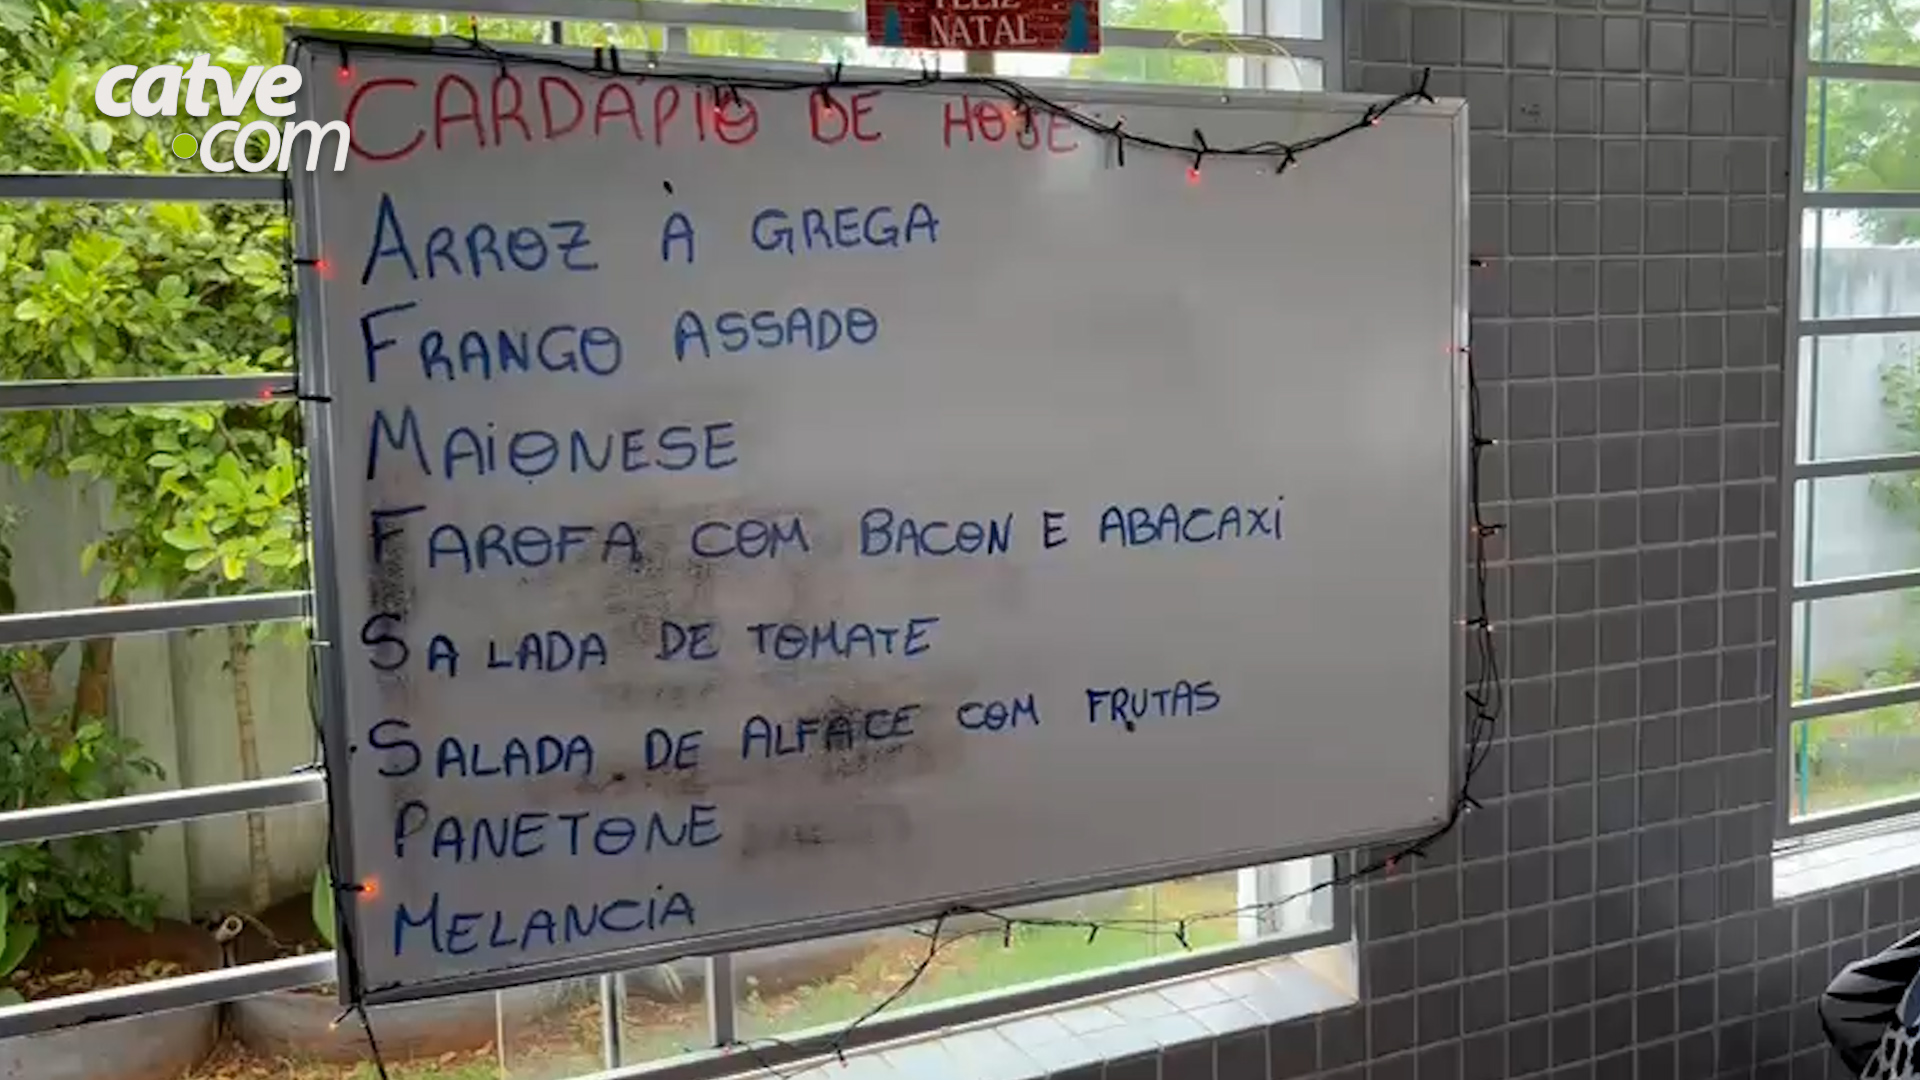 FELIZ
NATAL
catve
.com
CARDÁPIO DE HOJE
ARROZ À GREGA
FRANGO ASSADO
MAIONESE
FAROFA COM BACON E ABACAXI
SALADA DE TOMATE
SALADA DE ALFACE COM FRUTAS
PANETONE
MELANCIA